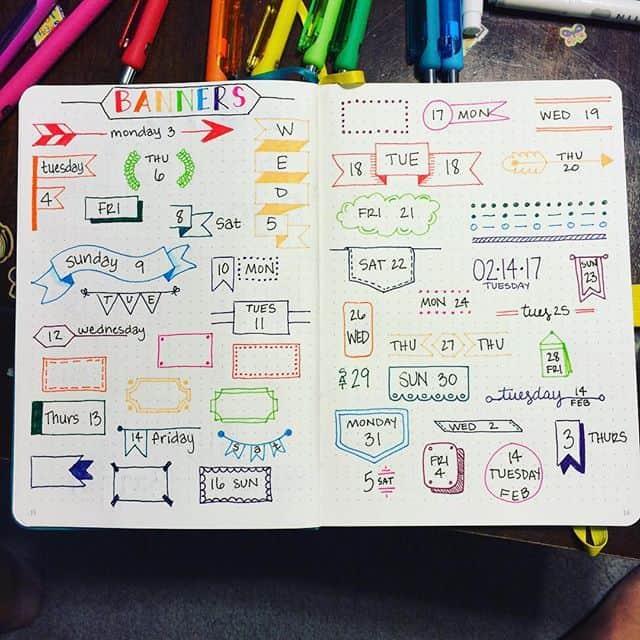 BANNERS
monday 3
tuesday
4
THU
6
W
E
D
5
FRI
8
Sat
sunday 9
10
MON
TUE
TUES
11
12
wednesday
Thurs 13
14
friday
SAT
16 SUN
17 MON
WED 19
18
TUE
18
THU
20
FRI 21
SAT 22
02.14.17
TUESDAY
SUN
23
MON 24
26
WED
tues 25
THU 27 THU
28
FRI
SAT 29
SUN 30
tuesday 14
FEB
MONDAY
31
WED 2
3
THURS
FRI
4
5 SAT
14
TUESDAY
FEB